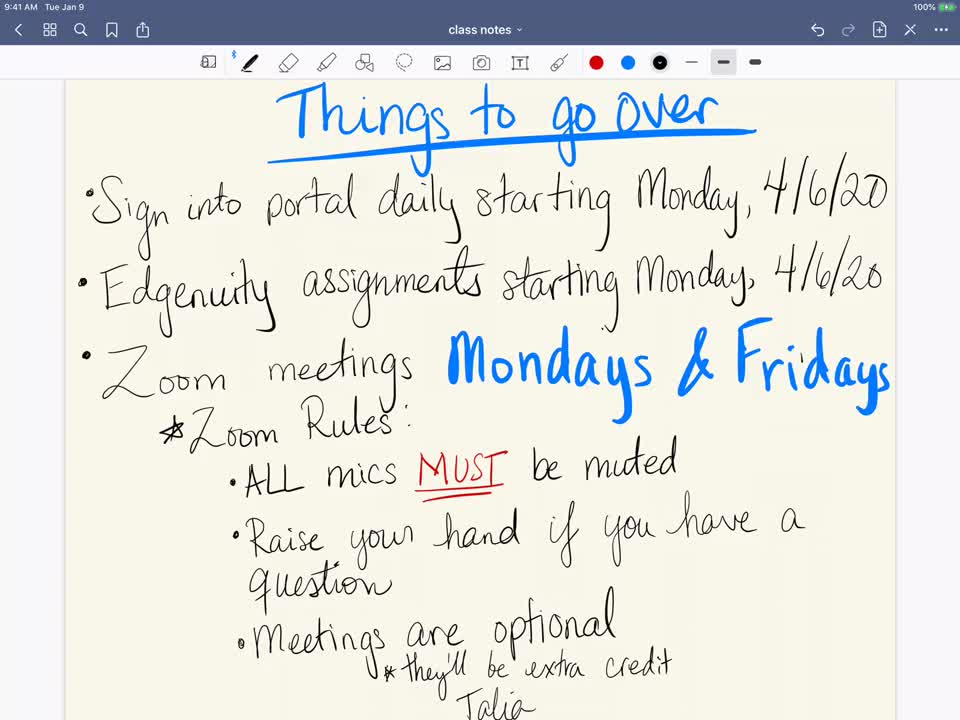 9:41 AM Tue Jan 9
100%
class notes
Things to go over
•Sign into portal daily starting Monday, 4/6/20
•Edgenuity assignments starting Monday, 4/6/20
•Zoom meetings Mondays & Fridays
*Zoom Rules:
•ALL mics MUST be muted
•Raise your hand if you have a
question
•Meetings are optional
*they'll be extra credit
Talia